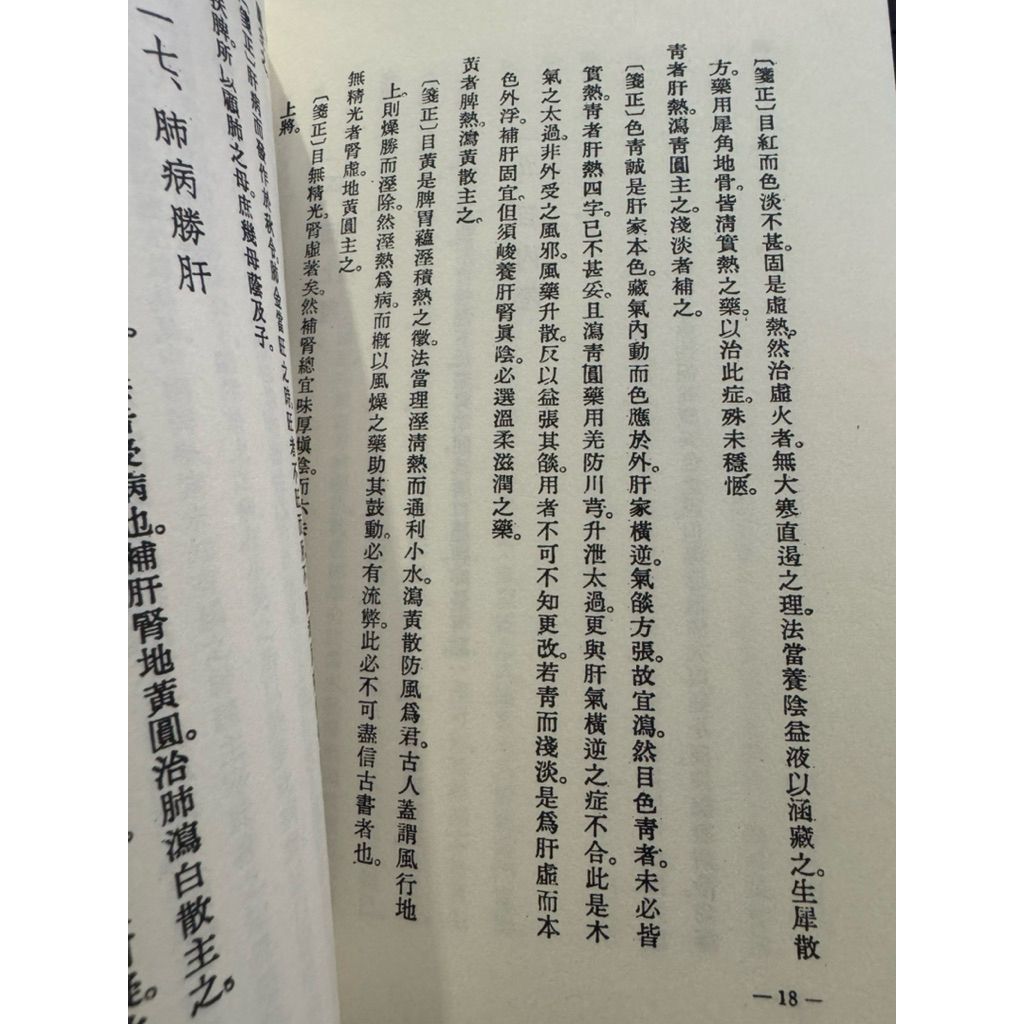 〔箋正〕目紅而色淡不甚。固是虛熱。然治虛火者。無大寒直遏之理。法當養陰益液以涵藏之。生犀散
方。藥用犀角地骨。皆淸實熱之藥。以治此症。殊未穩愜。
靑者肝熱。瀉靑圓主之。淺淡者補之。
〔箋正〕色靑誠是肝家本色。藏氣內動而色應於外。肝家橫逆。氣燄方張。故宜瀉。然目色靑者。未必皆
實熱。靑者肝熱四字。已不甚妥。且瀉靑圓藥用羌防川芎。升泄太過。更與肝氣橫逆之症不合。此是木
氣之太過。非外受之風邪。風藥升散。反以益張其燄。用者不可不知更改。若靑而淺淡。是爲肝虛而本
色外浮。補肝固宜。但須峻養肝腎眞陰。必選溫柔滋潤之藥。
黃者脾熱。瀉黃散主之。
〔箋正〕目黃是脾胃蘊溼積熱之徵。法當理溼淸熱而通利小水。瀉黃散防風爲君。古人蓋謂風行地
上。則燥勝而溼除。然溼熱爲病。而槪以風燥之藥助其鼓動。必有流弊。此必不可盡信古書者也。
無精光者腎虛。地黃圓主之。
〔箋正〕目無精光。腎虛著矣。然補腎總宜味厚塡陰。而六
上將。
〔箋正〕肝病而發作於秋令。肺金當旺之
扶脾所以顧肺之母。庶幾母蔭及子。
一七、肺病勝肝
受病也。補肝腎地黃圓。治肺瀉白散主之。